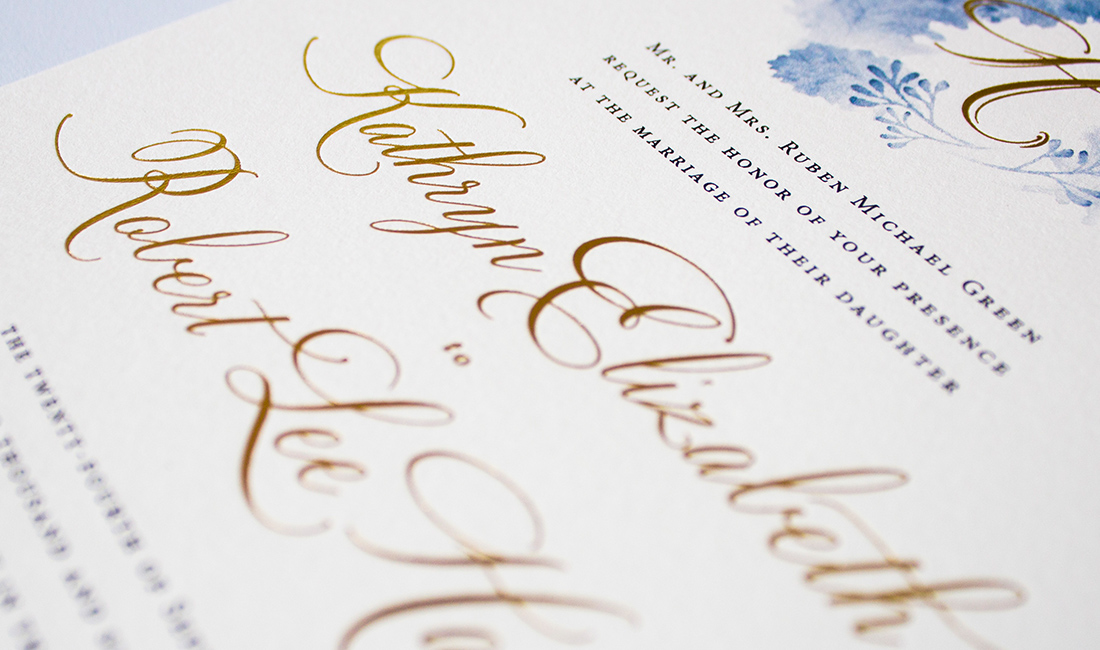 Mr. and Mrs. Ruben Michael Green
request the honor of your presence
at the marriage of their daughter
Kathryn Elizabeth
to
Robert Lee
the twenty-fourth of
thousand and